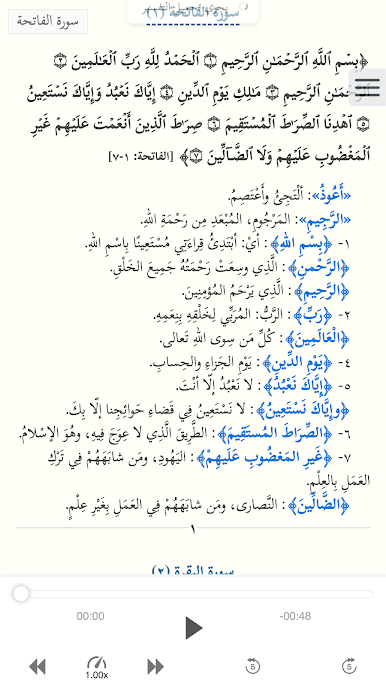 سورة الفاتحة
سورة الفاتحة (١)
﴿بِسْمِ ٱللَّهِ ٱلرَّحْمَٰنِ ٱلرَّحِيمِ ١ ٱلْحَمْدُ لِلَّهِ رَبِّ ٱلْعَٰلَمِينَ ٢
ٱلرَّحْمَٰنِ ٱلرَّحِيمِ ٣ مَٰلِكِ يَوْمِ ٱلدِّينِ ٤ إِيَّاكَ نَعْبُدُ وَإِيَّاكَ نَسْتَعِينُ
٥ ٱهْدِنَا ٱلصِّرَٰطَ ٱلْمُسْتَقِيمَ ٦ صِرَٰطَ ٱلَّذِينَ أَنْعَمْتَ عَلَيْهِمْ غَيْرِ
ٱلْمَغْضُوبِ عَلَيْهِمْ وَلَا ٱلضَّآلِّينَ ٧﴾ [الفاتحة: ١-٧]
«أَعُوذُ»: أَلْتَجِئُ وأَعْتَصِمُ.
«الرَّجِيمِ»: المَرْجُومِ، المُبْعَدِ مِن رَحْمَةِ اللهِ.
١- ﴿بِسْمِ اللهِ﴾: أيْ: أَبْتَدِئُ قِراءَتِي مُسْتَعِينًا بِاسْمِ اللهِ.
﴿الرَّحْمنِ﴾: الَّذِي وسِعَتْ رَحْمَتُهُ جَمِيعَ الخَلْقِ.
﴿الرَّحِيمِ﴾: الَّذِي يَرْحَمُ المُؤمِنِينَ.
٢- ﴿رَبِّ﴾: الرَّبُّ: المُرَبِّي لِخَلْقِهِ بِنِعَمِهِ.
﴿الْعَالَمِينَ﴾: كُلِّ مَن سِوى اللهِ تَعالى.
٤- ﴿يَوْمِ الدِّينِ﴾: يَوْمِ الجَزاءِ والحِسابِ.
٥- ﴿إِيَّاكَ نَعْبُدُ﴾: لا نَعْبُدُ إلّا أنْتَ.
﴿وإِيَّاكَ نَسْتَعِينُ﴾: لا نَسْتَعِينُ فِي قَضاءِ حَوائِجِنا إلّا بِكَ.
٦- ﴿الصِّرَاطَ المُسْتَقِيمَ﴾: الطَّرِيقَ الَّذِي لا عِوَجَ فِيهِ، وهُوَ الإسْلامُ.
٧- ﴿غَيرِ المَغضُوبِ عَلَيهِمْ﴾: اليَهُودِ، ومَن شابَهَهُمْ فِي تَرْكِ
العَمَلِ بِالعِلْمِ.
﴿الضَّالِّينَ﴾: النَّصارى، ومَن شابَهَهُمْ فِي العَمَلِ بِغَيْرِ عِلْمٍ.
١
سورة البقرة (٢)
00:00
-00:48
1.00x
5
5